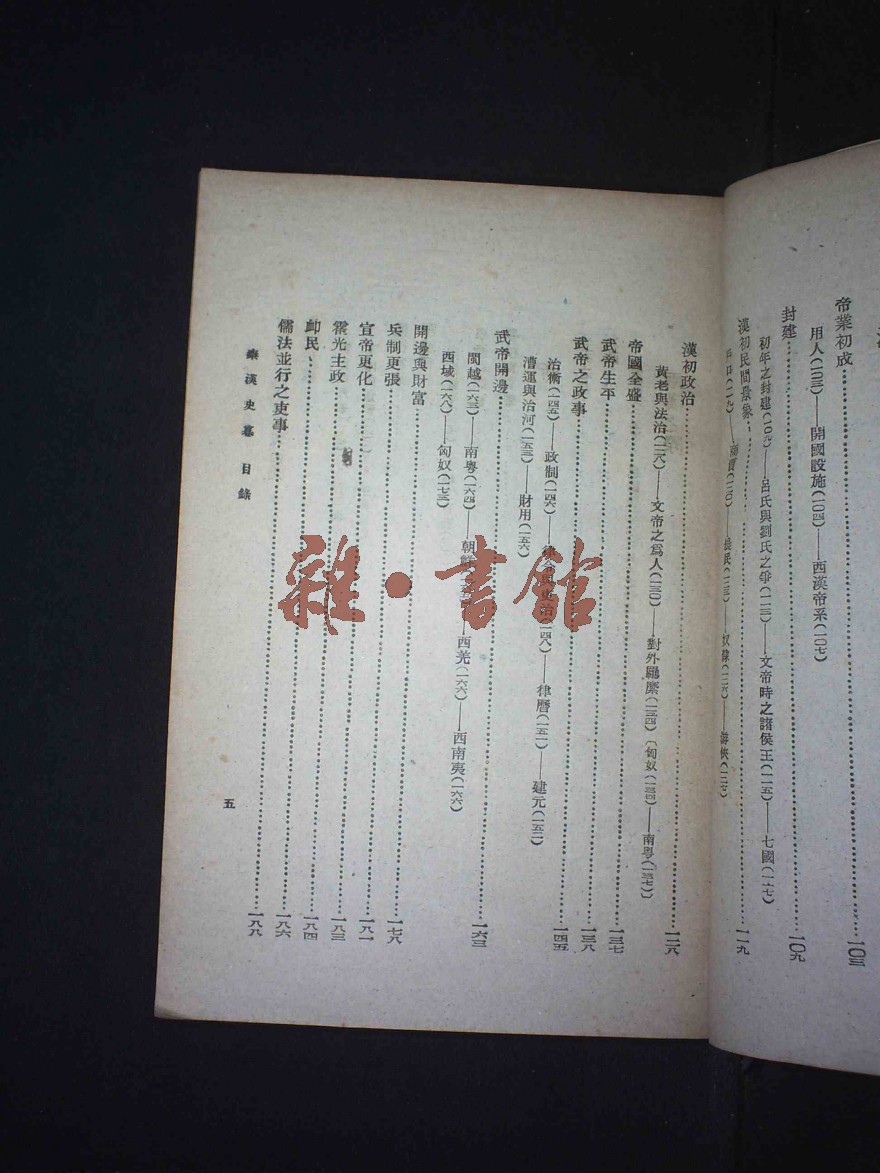 帝業初成……一〇三
用人(一〇三)——開國設施(一〇四)——西漢帝系(一〇七)
封建……一〇九
初年之封建(一〇九)——呂氏與劉氏之爭(一一三)——文帝時之諸侯王(一一五)——七國(一一七)
漢初民間景象……一一九
(一一九)——商賈(一二〇)——奴隸(一二六)——游俠
漢初政治……一二八
黃老與法治(一二八)——文帝之為人(一三〇)——對外羈縻(一三四)(匈奴——南粵(一三七)
帝國全盛……一三七
武帝生平……一三八
武帝之政事……一四五
治術(一四五)——政制(一四六)——律曆(一五一)——建元(一五二)
漕運與治河(一五三)——財用(一五六)
武帝開邊……一六三
閩越(一六三)——南粵(一六四)——朝鮮——西羌(一六六)——西南夷(一六六)
西域(一六八)——匈奴(一七三)
開邊與財富……一七八
兵制更張……一八一
宣帝更化……一八三
霍光主政……一八四
卹民……一八六
儒法並行之吏事……一八八
秦漢史纂 目錄
五
雜·書館